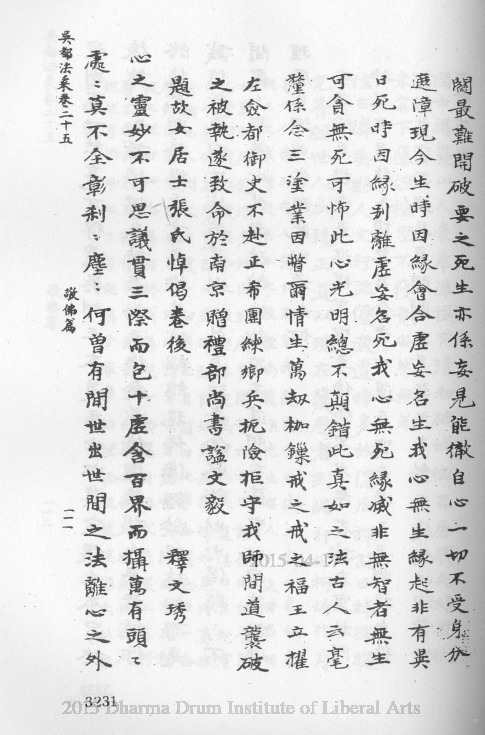 關最難開破要之死生亦係妄見能徹自心一切不受身分
遮障現今生時因緣會合虛妄名生我心無生緣起非有吳
日死時因緣別離虛妄名死我心無死緣滅非無智者無生
可貪無死可怖此心光明總不顛錯此真如之法古人云毫
釐係念三塗業因瞥爾情生萬劫枷鎖戒之戒之福王立擢
左僉都御史不赴正希團練鄉兵扼險拒守我師間道襲破
之被執遂致命於南京贈禮部尚書諡文毅
題故女居士張氏悼偈卷後 釋文琇
心之靈妙不可思議貫三際而包十虛含百界而攝萬有頭:
處:莫不全彰刹:塵:何曾有閒世出世間之法離心之外
吳都法乘卷二十五 敬佛篇 一一
3231
2015-04-1
2015 Dharma Drum Institute of Liberal Arts